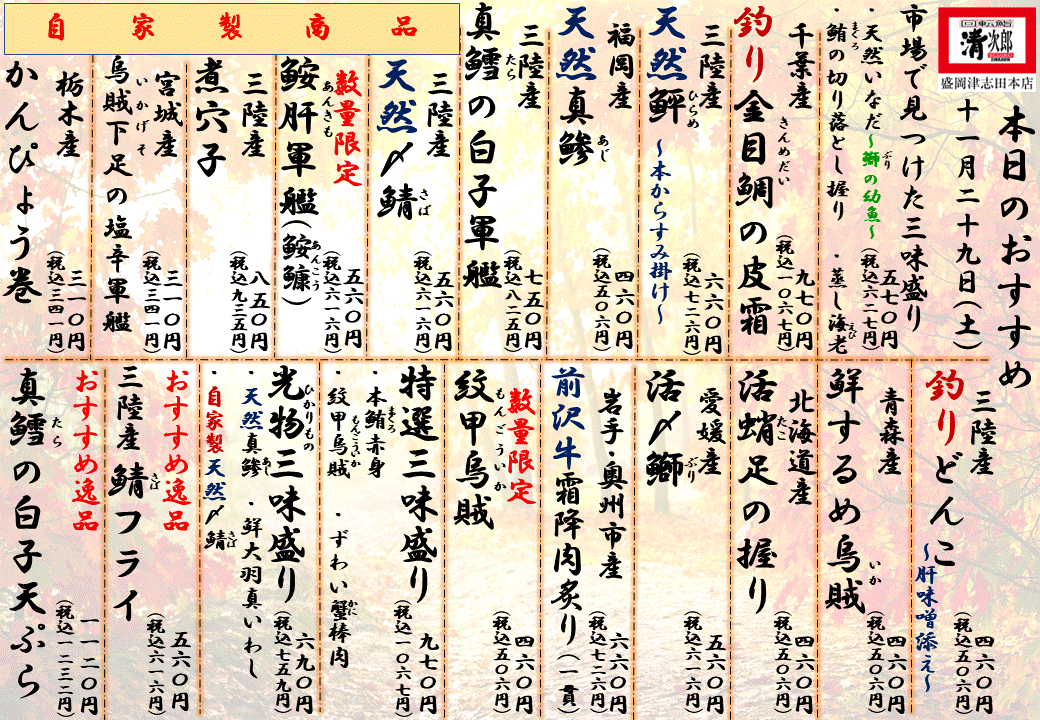 回転鮨
清次郎
盛岡津志田本店
本日のおすすめ
十一月二十九日(土)
市場で見つけた三味盛り
・天然いなだ~鰤の幼魚~
ぶり
・鮪の切り落とし握り
まぐろ
・蒸し海老
えび
五七〇円
(税込六二七円)
千葉産
釣り金目鯛の皮霜
きんめだい
九七〇円
(税込一〇六七円)
三陸産
天然鮃
ひらめ
~本からすみ掛け~
六六〇円
(税込七二六円)
福岡産
天然真鯵
あじ
四六〇円
(税込五〇六円)
三陸産
真鱈の白子軍艦
たら
七五〇円
(税込八二五円)
自家製商品
三陸産
天然〆鯖
さば
五六〇円
(税込六一六円)
数量限定
鮟肝軍艦(鮟鱇)
あんきも
あんこう
五六〇円
(税込六一六円)
三陸産
煮穴子
八五〇円
(税込九三五円)
宮城産
烏賊下足の塩辛軍艦
いかげそ
三一〇円
(税込三四一円)
栃木産
かんぴょう巻
三一〇円
(税込三四一円)
三陸産
釣りどんこ
~肝味噌添え~
四六〇円
(税込五〇六円)
青森産
鮮するめ烏賊
いか
四六〇円
(税込五〇六円)
北海道産
活蛸足の握り
たこ
四六〇円
(税込五〇六円)
愛媛産
活〆鰤
ぶり
五六〇円
(税込六一六円)
岩手・奥州市産
前沢牛霜降肉炙り(一貫)
六六〇円
(税込七二六円)
数量限定
紋甲烏賊
もんごういか
四六〇円
(税込五〇六円)
特選三味盛り
・本鮪赤身
まぐろ
・紋甲烏賊
もんごういか
・ずわい蟹棒肉
かに
九七〇円
(税込一〇六七円)
光物三味盛り
ひかりもの
・天然真鯵
あじ
・鮮大羽真いわし
・自家製天然〆鯖
さば
六九〇円
(税込七五九円)
おすすめ逸品
三陸産鯖フライ
さば
五六〇円
(税込六一六円)
おすすめ逸品
真鱈の白子天ぷら
たら
一一二〇円
(税込一二三二円)